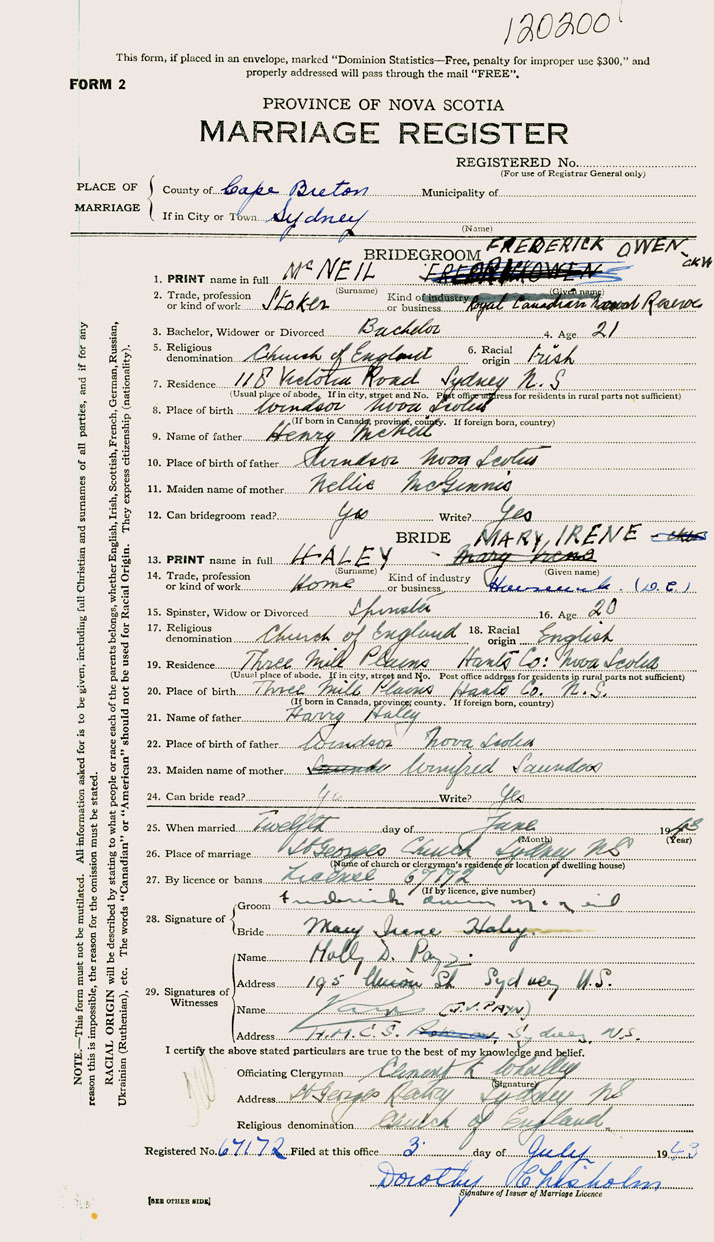 120200
This form, if placed in an envelope, marked "Dominion Statistics—Free, penalty for improper use $300," and
properly addressed will pass through the mail "FREE".
FORM 2
PROVINCE OF NOVA SCOTIA
MARRIAGE REGISTER
REGISTERED No.
(For use of Registrar General only)
PLACE OF MARRIAGE
County of Cape Breton Municipality of
If in City or Town Sydney
(Name)
BRIDEGROOM FREDERICK OWEN
1. PRINT name in full McNEIL
(Surname) (Given name)
2. Trade, profession or kind of work Stoker Kind of industry or business Royal Canadian Naval Reserve
3. Bachelor, Widower or Divorced Bachelor 4. Age 21
5. Religious denomination Church of England 6. Racial origin Irish
7. Residence 118 Victoria Road Sydney N.S
(Usual place of abode. If in city, street and No. Post office address for residents in rural parts not sufficient)
8. Place of birth Windsor Nova Scotia
(If born in Canada, province, county. If foreign born, country)
9. Name of father Henry McNeil
10. Place of birth of father Windsor Nova Scotia
11. Maiden name of mother Nellie McGinnis
12. Can bridegroom read? Yes Write? Yes
BRIDE MARY, IRENE
13. PRINT name in full HALEY Mary Irene
(Surname) (Given name)
14. Trade, profession or kind of work Home Kind of industry or business
15. Spinster, Widow or Divorced Spinster 16. Age 20
17. Religious denomination Church of England 18. Racial origin English
19. Residence Three Mile Plains Hants Co: Nova Scotia
(Usual place of abode. If in city, street and No. Post office address for residents in rural parts not sufficient)
20. Place of birth Three Mile Plains Hants Co. N.S.
(If born in Canada, province, county. If foreign born, country)
21. Name of father Harry Haley
22. Place of birth of father Windsor Nova Scotia
23. Maiden name of mother Winifred Saunders
24. Can bride read? Yes Write? Yes
25. When married Twelfth day of June 1943
(Month) (Year)
26. Place of marriage St Georges Church Sydney NS
(Name of church or clergyman's residence or location of dwelling house)
27. By licence or banns License 67172
(If by licence, give number)
28. Signature of
Groom Frederick Owen McNeil
Bride Mary Irene Haley.
29. Signatures of Witnesses
Name Molly D. Payn.
Address 195 Union St Sydney N.S.
Name (J.V. PAYN)
Address H.M.C.S. Sydney, N.S.
I certify the above stated particulars are true to the best of my knowledge and belief.
Officiating Clergyman
(Signature)
Address St Georges Rectory Sydney NS
Religious denomination Church of England.
Registered No. 67172 Filed at this office 3 day of July 1943
Dorothy Chisholm
Signature of Issuer of Marriage Licence
[SEE OTHER SIDE]
NOTE.—This form must not be mutilated. All information asked for is to be given, including full Christian and surnames of all parties, and if for any
reason this is impossible, the reason for the omission must be stated.
RACIAL ORIGIN will be described by stating to what people or race each of the parents belongs, whether English, Irish, Scottish, French, German, Russian,
Ukrainian (Ruthenian), etc. The words "Canadian" or "American" should not be used for Racial Origin. They express citizenship (nationality).